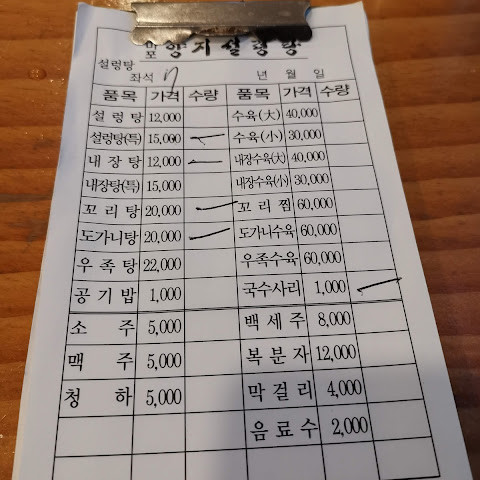 마포 양지설렁탕
설렁탕
좌석 7 년 월 일
품목 가격 수량 품목 가격 수량
설렁탕 12,000 수육(大) 40,000
설렁탕(특) 15,000 수육(小) 30,000
내장탕 12,000 내장수육(大) 40,000
내장탕(특) 15,000 내장수육(小) 30,000
꼬리탕 20,000 꼬리찜 60,000
도가니탕 20,000 도가니수육 60,000
우족탕 22,000 우족수육 60,000
공기밥 1,000 국수사리 1,000
소주 5,000 백세주 8,000
맥주 5,000 복분자 12,000
청하 5,000 막걸리 4,000
음료수 2,000